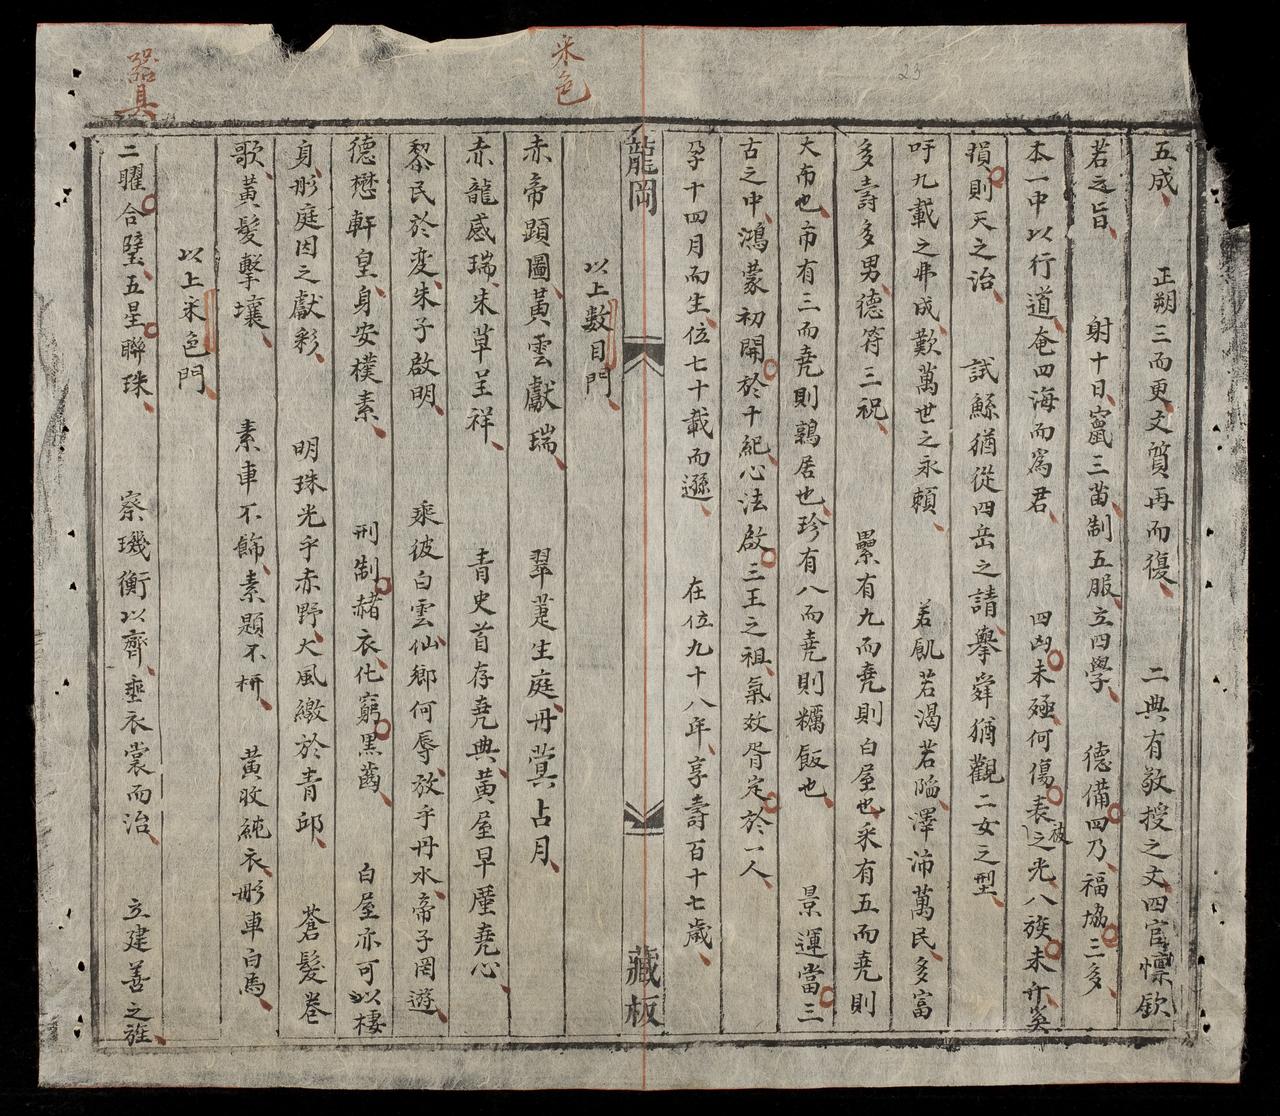 器具
采色
23
五成　正朔三而更文質再而復　二典有敬授之文四官懍欽
若之旨　射十日竄三苗制五服立四學　德備四乃福協三多
本一中以行道奄四海而爲君　四凶未殛何傷表被之光八族未升奚
損則天之治　試鯀猶從四岳之請舉舜猶觀二女之型
吁九載之弗成歎萬世之永賴　若飢若渴若陷澤沛萬民多富
多壽多男德符三祝　罍有九而堯則白屋也采有五而堯則
大布也市有三而堯則鶉居也珍有八而堯則糲飯也　景運當三
古之中鴻蒙初開於千紀心法啟三王之祖氣效胥定於一人
孕十四月而生位七十載而遜　在位九十八年享壽百十七歲
龍岡
藏板
以上數目門
赤帝顕圖黃雲獻瑞　翠萐生庭丹蓂占月
赤龍感瑞朱草呈祥　青史首存堯典黃屋早廑堯心
黎民於変朱子啟明　乘彼白雲仙鄉何辱放乎丹水帝子罔遊
德懋軒皇身安樸素　刑制赭衣化窮黑齒　白屋亦可以棲
身彤庭因之獻彩　明珠光乎赤野大風繳於青邱　蒼髮巷
歌黃髮擊壤　素車不飾素題不枅　黃收純衣彤車白馬
以上采色門
二曜合璧五星聯珠　察璣衡以齊垂衣裳而治　立建善之旌